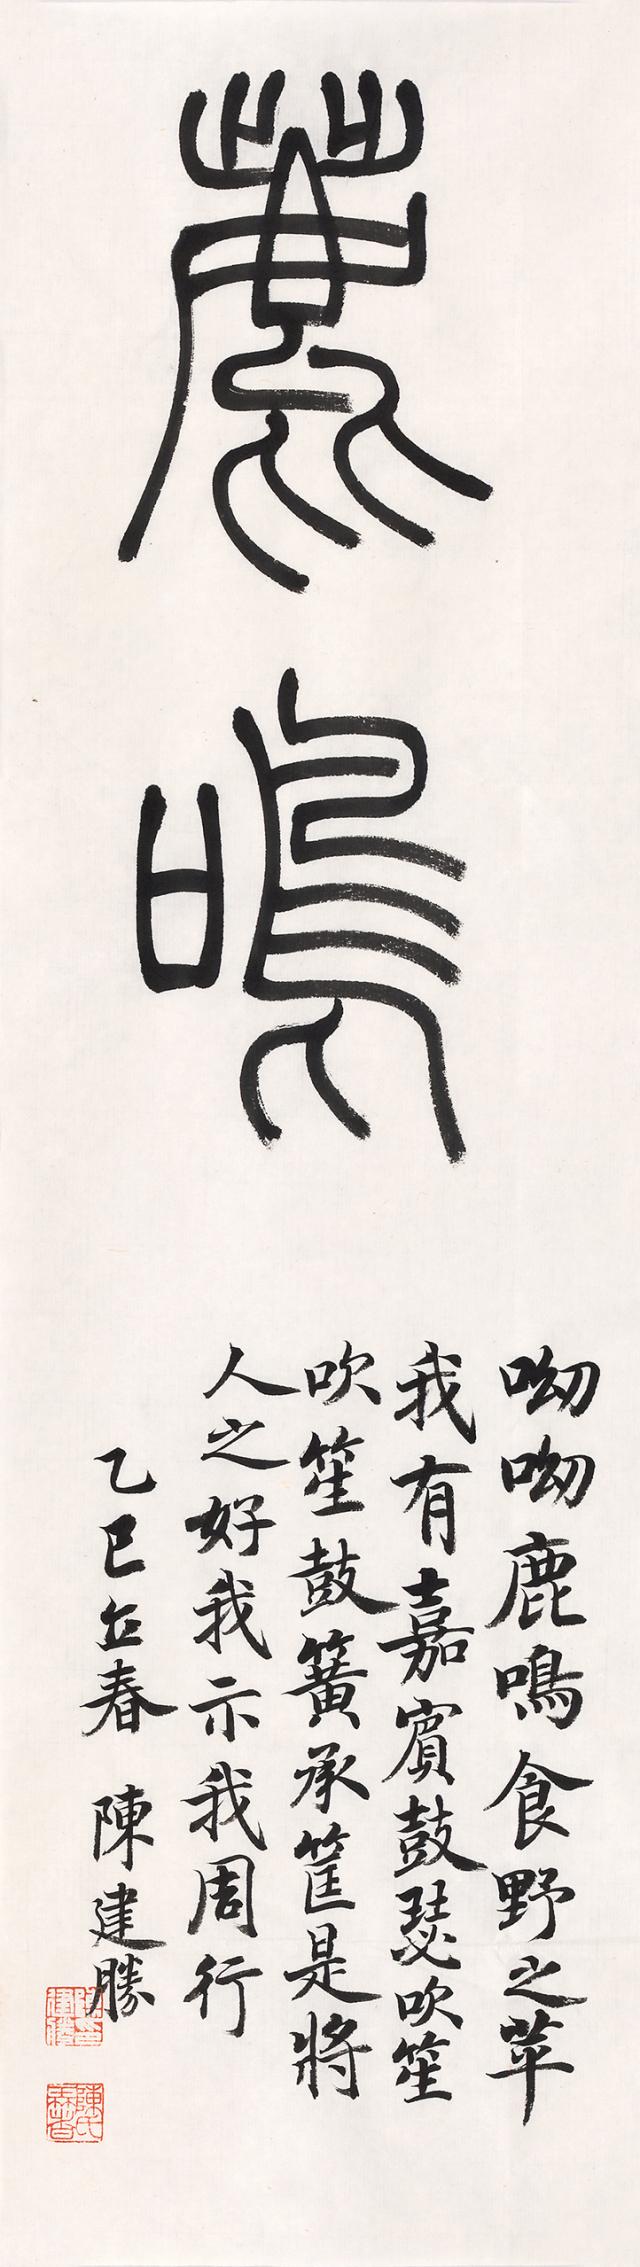 鹿鳴
呦呦鹿鳴食野之苹
我有嘉賓鼓瑟吹笙
吹笙鼓簧承筐是將
人之好我示我周行
乙巳立春 陳建勝